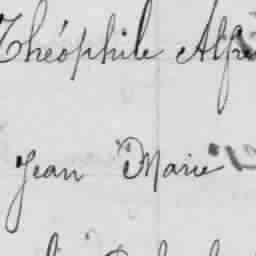 Théophile Alfre
Jean Marie